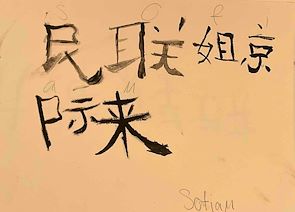 S O f i
民联姐京
a M
际来
Sofiam